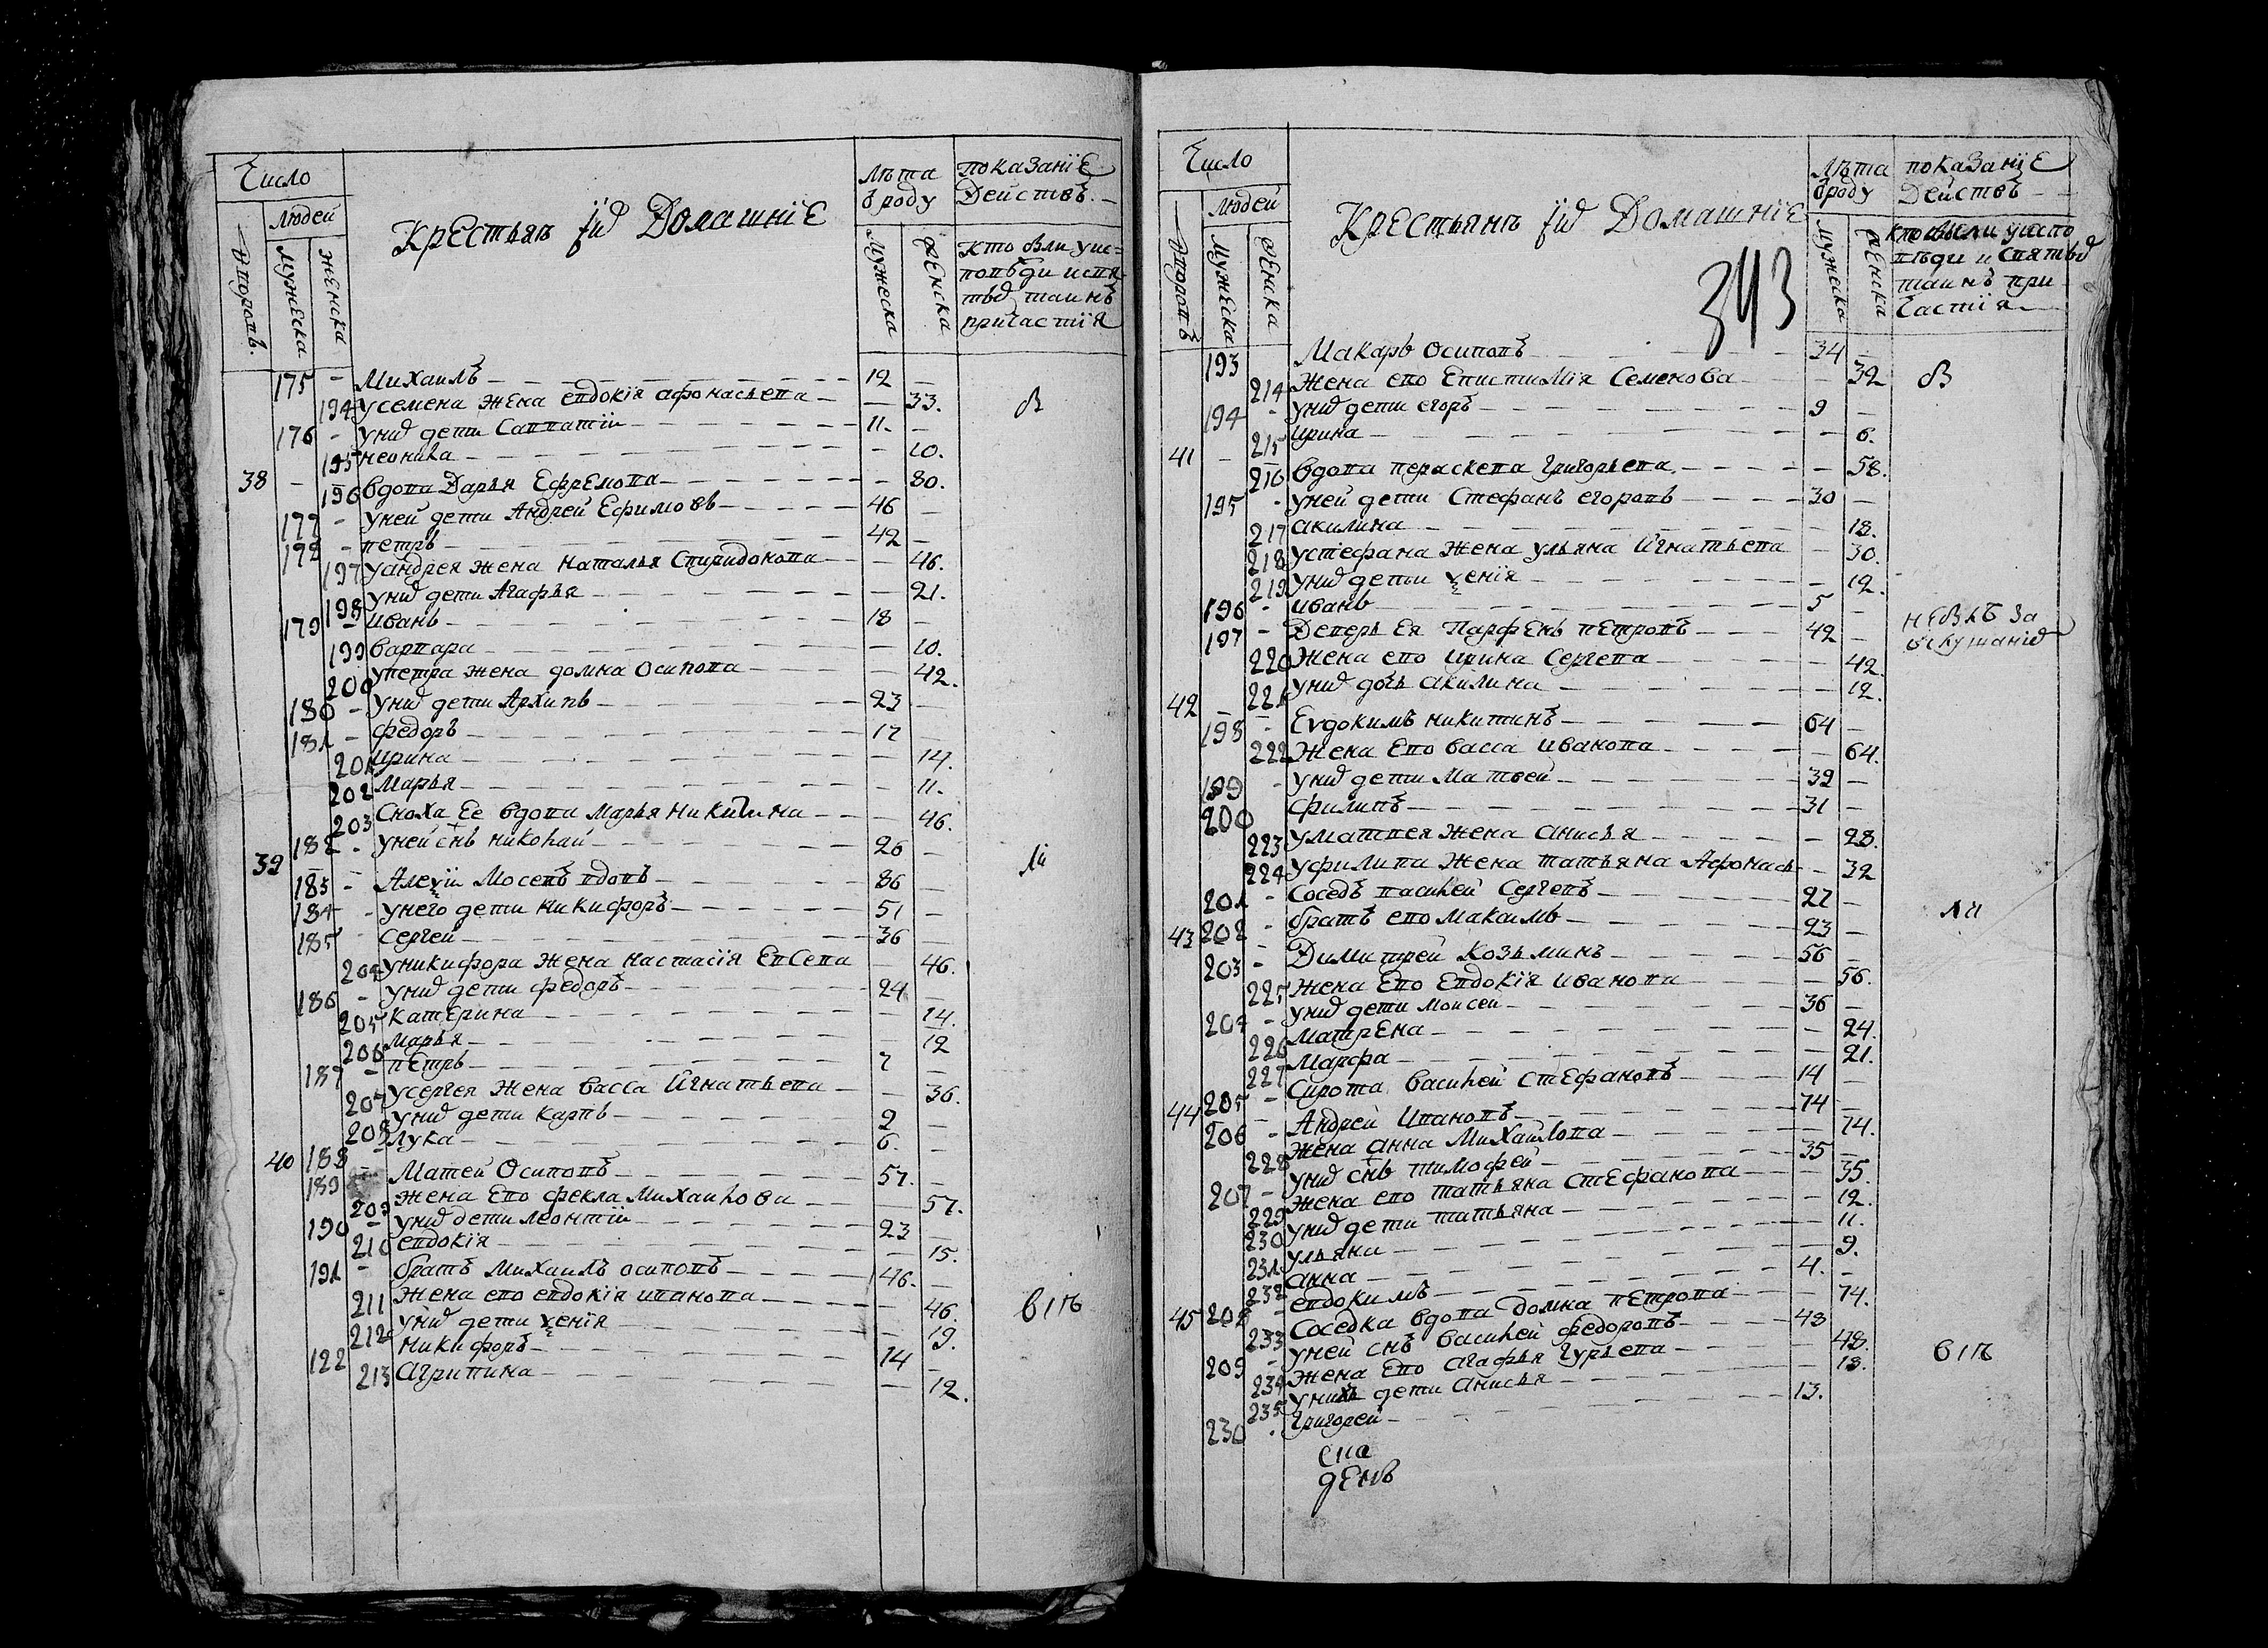 Число
Людей
Дворовъ.
мужеска
женска
Крестьянъ їихъ Домашніе
Лѣта
ѿ роду
мужеска
женска
показаніе
Действъ.
кто были уис-
поведи исвя-
тыхъ таинъ
причастия
175 - Михаилъ 12 -
194 усемена жена евдокія афонасьева - 33.
176 - унихъ дети Савватіи 11. -
195 неонила - 10.
38 - 196 вдова Дарья Ефремова - 80.
177 - уней дети Андрей Ефимовъ 46 -
178 - петръ 42 -
197 уандрея жена наталья Спиридонова - 46.
198 унихъ дети Агафья - 21.
179 - иванъ 18 -
199 варвара - 10.
200 упетра жена домна Осипова - 42.
180 - унихъ дети Архипъ 23 -
181 - федоръ 17 -
201 ирина - 14.
202 Марья - 11.
203 Сноха Ее вдова Марья Никитина - 46.
182 - уней снъ николай 26 -
39 183 - Алеѯіи Мосеевъ вдовъ 86 -
184 - унего дети никифоръ 51 -
185 - Сергей 36 -
204 уникифора жена настасія Евсева - 46.
186 - унихъ дети федоръ 24 -
205 катерина - 14.
206 Марья - 12
187 - петръ 7 -
207 усергея жена васса Игнатьева - 36.
208 унихъ дети карпъ 2 -
188 - Лука 6. -
40 189 Матей Осиповъ 57. -
209 жена Ево фекла Михаилова - 57.
190 - унихъ дети леонтіи 23 -
210 евдокія - 15.
191 - братъ михаилъ осиповъ 46. -
211 жена ево евдокія иванова - 46.
212 унихъ дети ѯенія - 19.
122 никифоръ 14 -
213 Агрипина - 12.
Число
Людей
Дворовъ
мужеска
женска
Крестьянъ їихъ Домашніе
343
Лѣта
ѿ роду
мужеска
женска
показаніе
Действъ
кто были уиспо
вѣди и святыхъ
таинъ при
частія
193 Макаръ осиповъ 34 -
214 Жена ево Епистимія Семенова - 32
194 - унихъ дети егоръ 9 -
215 ирина - 6.
41 - 216 вдова параскева Григорьева - 58.
195 - уней дети Стефанъ егоровъ 30 -
217 акилина - 18.
218 устефана жена ульяна Игнатьева - 30.
219 унихъ дети ѯенія - 12.
196 - иванъ 5 -
197 - Деверь Ея Парфенъ петровъ 42 - небылъ за
220 жена ево ирина Сергева - 42.
221 унихъ дочь акилина - 12.
42 198 - Еѵдокимъ никитинъ 64 -
222 жена Ево васса иванова - 64.
199 - унихъ дети Матвей 32 -
200 филипъ 31 -
223 уматвея жена анисья - 28.
224 уфилипа жена татьяна Афонась - 32
201 - Соседъ василей Сергевъ 27 -
202 - братъ ево Максимъ 23 -
43 203 - Димитрей Козьминъ 56 -
225 жена Ево Евдокія иванова - 56.
204 - унихъ дети моисеи 36 -
226 матрена - 24.
227 марфа - 21.
205 - Сирота василей Стефановъ 14 -
44 206 - Андрей Ивановъ 74 -
228 жена анна Михаилова - 74.
207 - унихъ снъ тимофей 35 -
229 жена ево татьяна Стефанова - 35.
230 унихъ дети татьяна - 12.
231 ульяна - 11.
232 анна - 9.
208 - евдокимъ 4. -
45 233 Соседка вдова домна петрова - 74.
209 - уней снъ василей федоровъ 48
234 жена Ево агафья Гурьева - 48.
235 унихъ дети анисья - 18.
230 . Григорей 13.